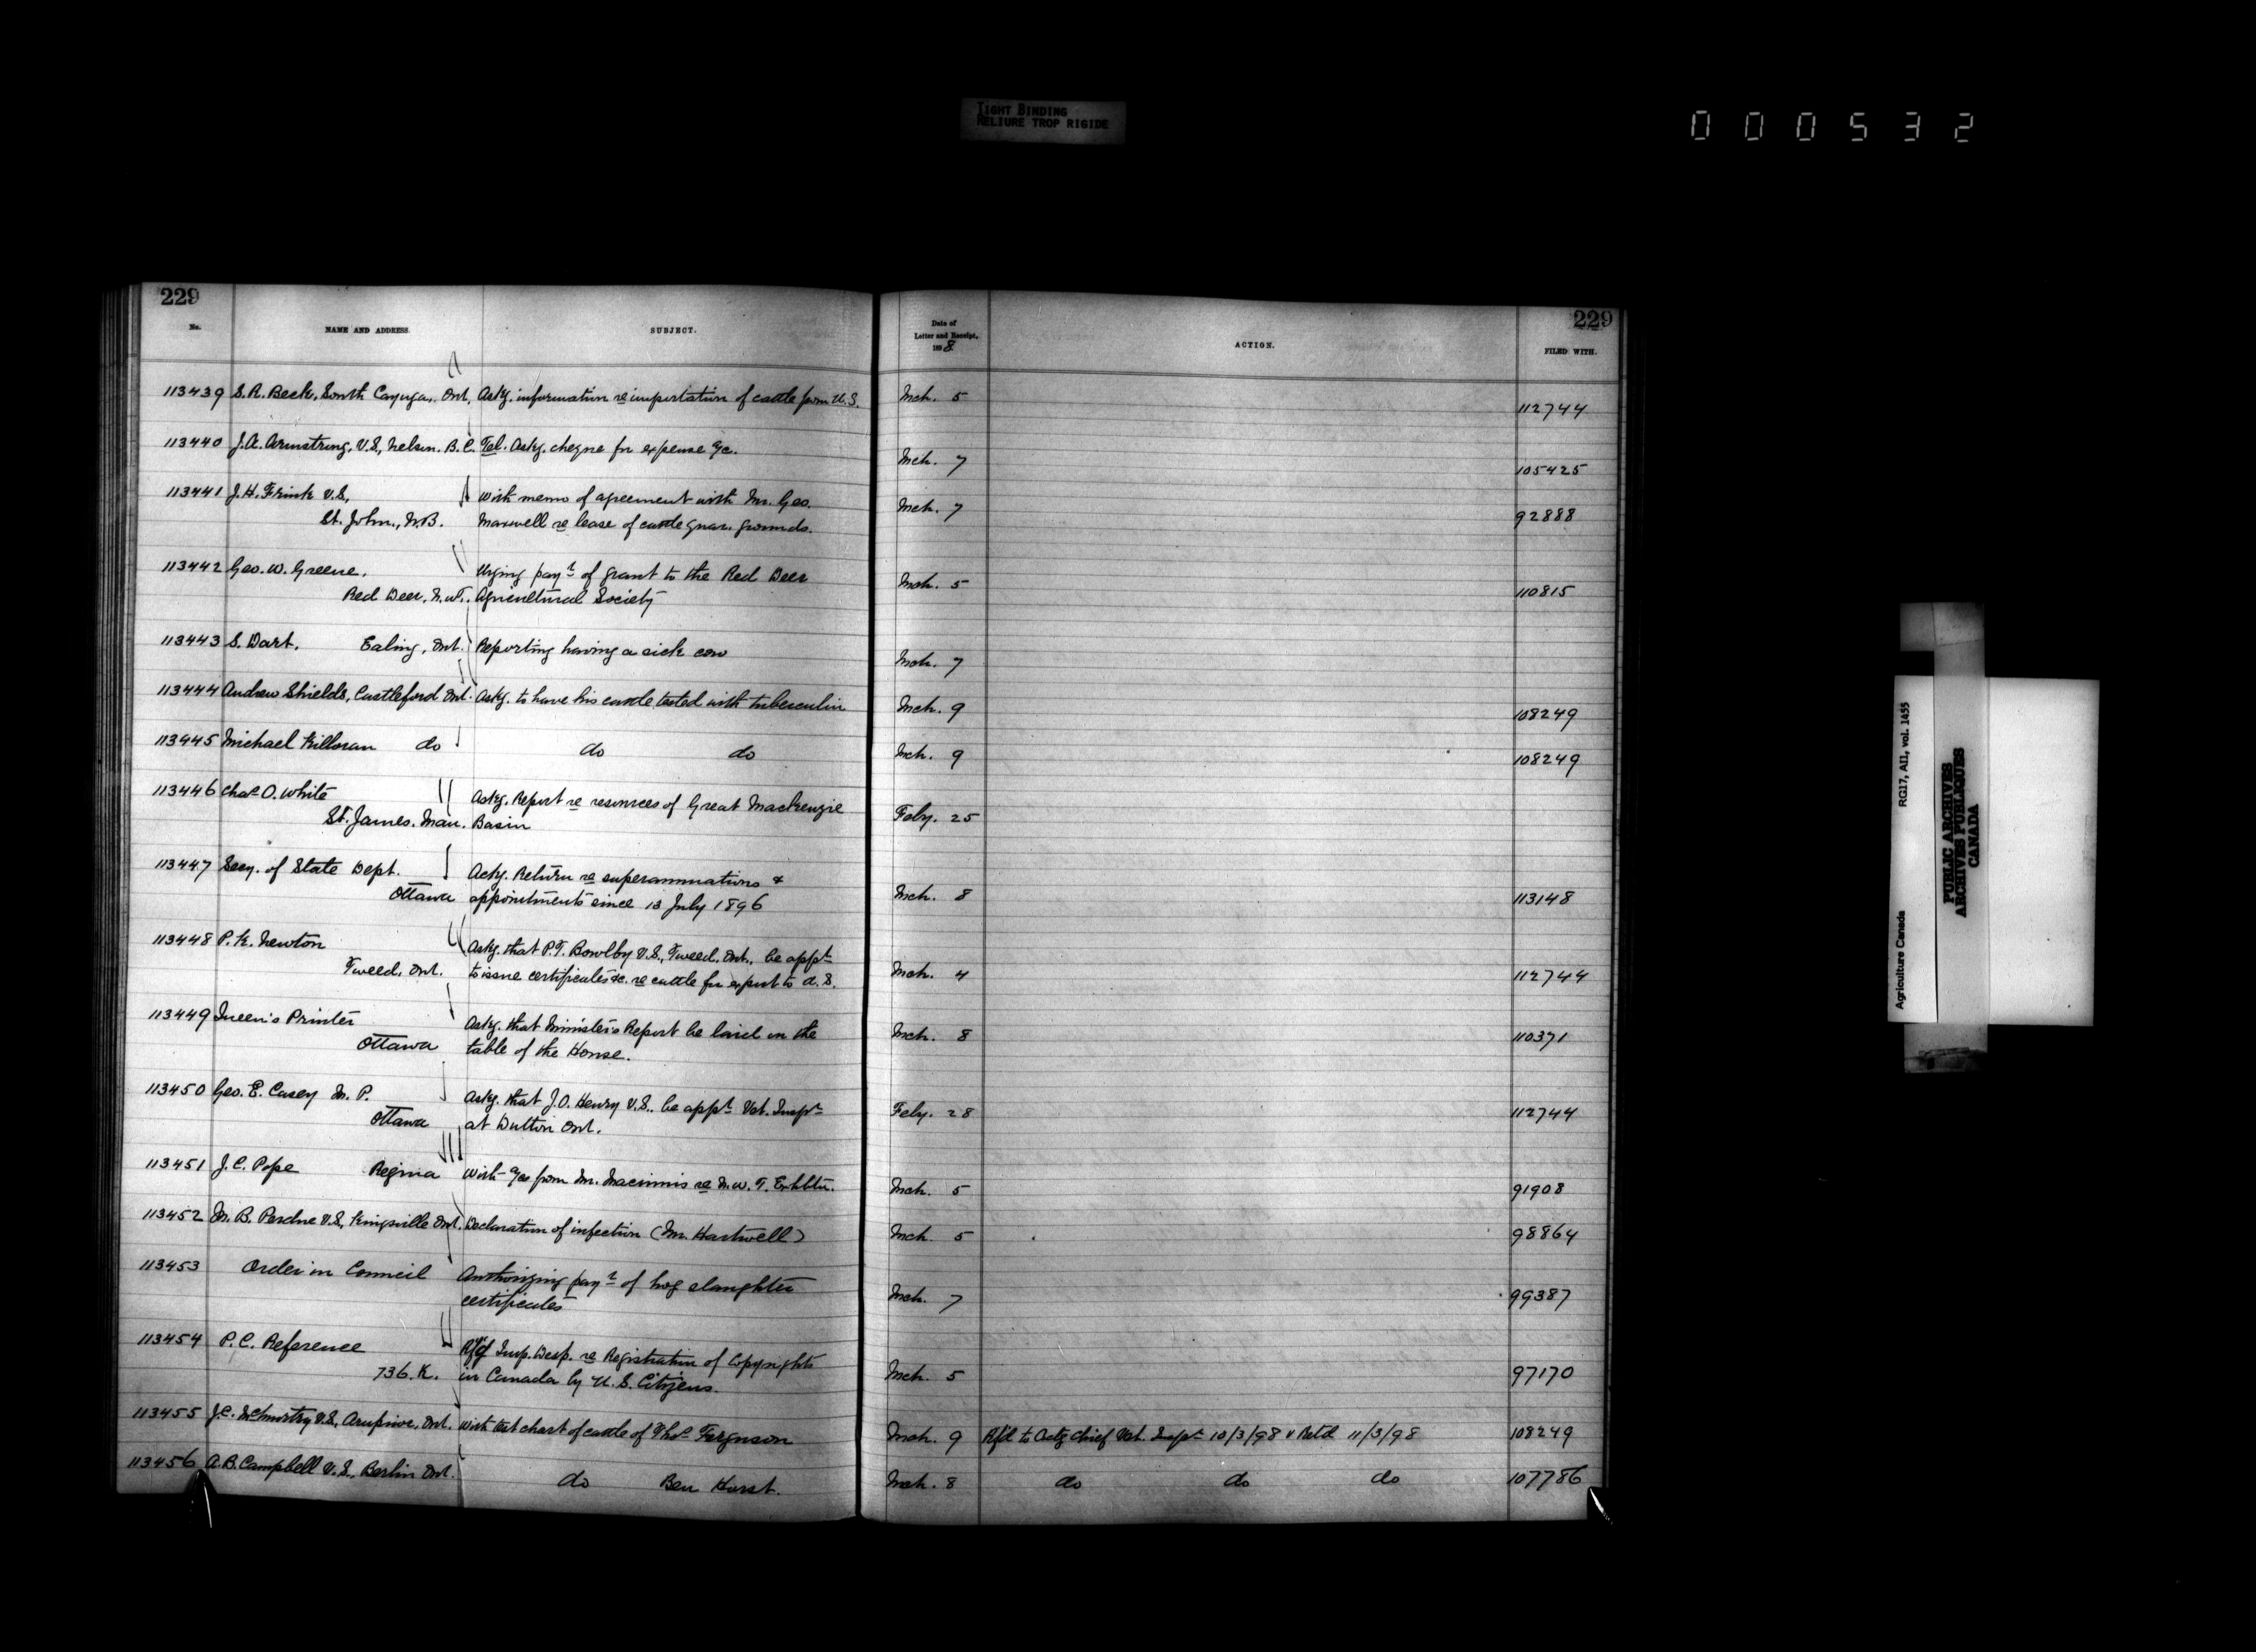 TIGHT BINDING
RELIURE TROP RIGIDE
000532
229
No. NAME AND ADDRESS. SUBJECT.
113439 S. R. Beck, South Cayuga, Ont. Askg. information re importation of cattle from U.S.
113440 J. A. Armstrong, V.S., Nelson. B.C. Tel. Askg. cheque for expense &c.
113441 J. H. Frink V.S, With memo of agreement with Mr. Geo.
St. John, N.B. Maxwell re lease of cattle quar. grounds.
113442 Geo. W. Greene. Urging payt of grant to the Red Deer
Red Deer, N.W.T. Agricultural Society
113443 S. Dart. Ealing, Ont. Reporting having a sick cow
113444 Andrew Shields, Castleford Ont. Askg. to have his cattle tested with tuberculin
113445 Michael Killoran do do do
113446 Chas O. White Askg. Report re resources of Great Mackenzie
St. James. Man. Basin
113447 Secy. of State Dept. Askg. Return re superannuations &
Ottawa appointments since 13 July 1896
113448 P. K. Newton Askg. that P.T. Bowlby V.S., Tweed, Ont., be appt
Tweed, Ont. to issue certificates &c. re cattle for export to U.S.
113449 Queen's Printer Askg. that Minister's Report be laid on the
Ottawa table of the House.
113450 Geo. E. Casey M. P. Askg. that J.O. Henry V.S.. be appt Vet. Inspr
Ottawa at Dutton Ont.
113451 J. C. Pope Regina With from Mr. Macinnis re N.W.T. Exhbtn.
113452 M. B. Perdue V.S, Kingsville Ont. Declaration of infection (Mr. Hartwell)
113453 Order in Council Authorizing payt of hog slaughter
certificates
113454 P. C. Reference Imp. Desp. re Registration of Copyrights
736. K. in Canada by U. S. Citizens.
113455 J.C. McMurtry V.S, Arnprior, Ont. With test chart of cattle of Thos Ferguson
113456 A. B. Campbell V.S, Berlin Ont. do Ben Hurst.
229
Date of Letter and Receipt, 1898 ACTION. FILED WITH.
Mch. 5 112744
Mch. 7 105425
Mch. 7 92888
Mch. 5 110815
Mch. 7
Mch. 9 108249
Mch. 9 108249
Feby. 25
Mch. 8 113148
Mch. 4 112744
Mch. 8 110371
Feby. 28 112744
Mch. 5 91908
Mch. 5 98864
Mch. 7 99387
Mch. 5 97170
Mch. 9 Rfd to Actg Chief Vet. Inspr 10/3/98 & Retd 11/3/98 108249
Mch. 8 do do do 107786
Agriculture Canada RG17, AII, vol. 1455
PUBLIC ARCHIVES
ARCHIVES PUBLIQUES
CANADA